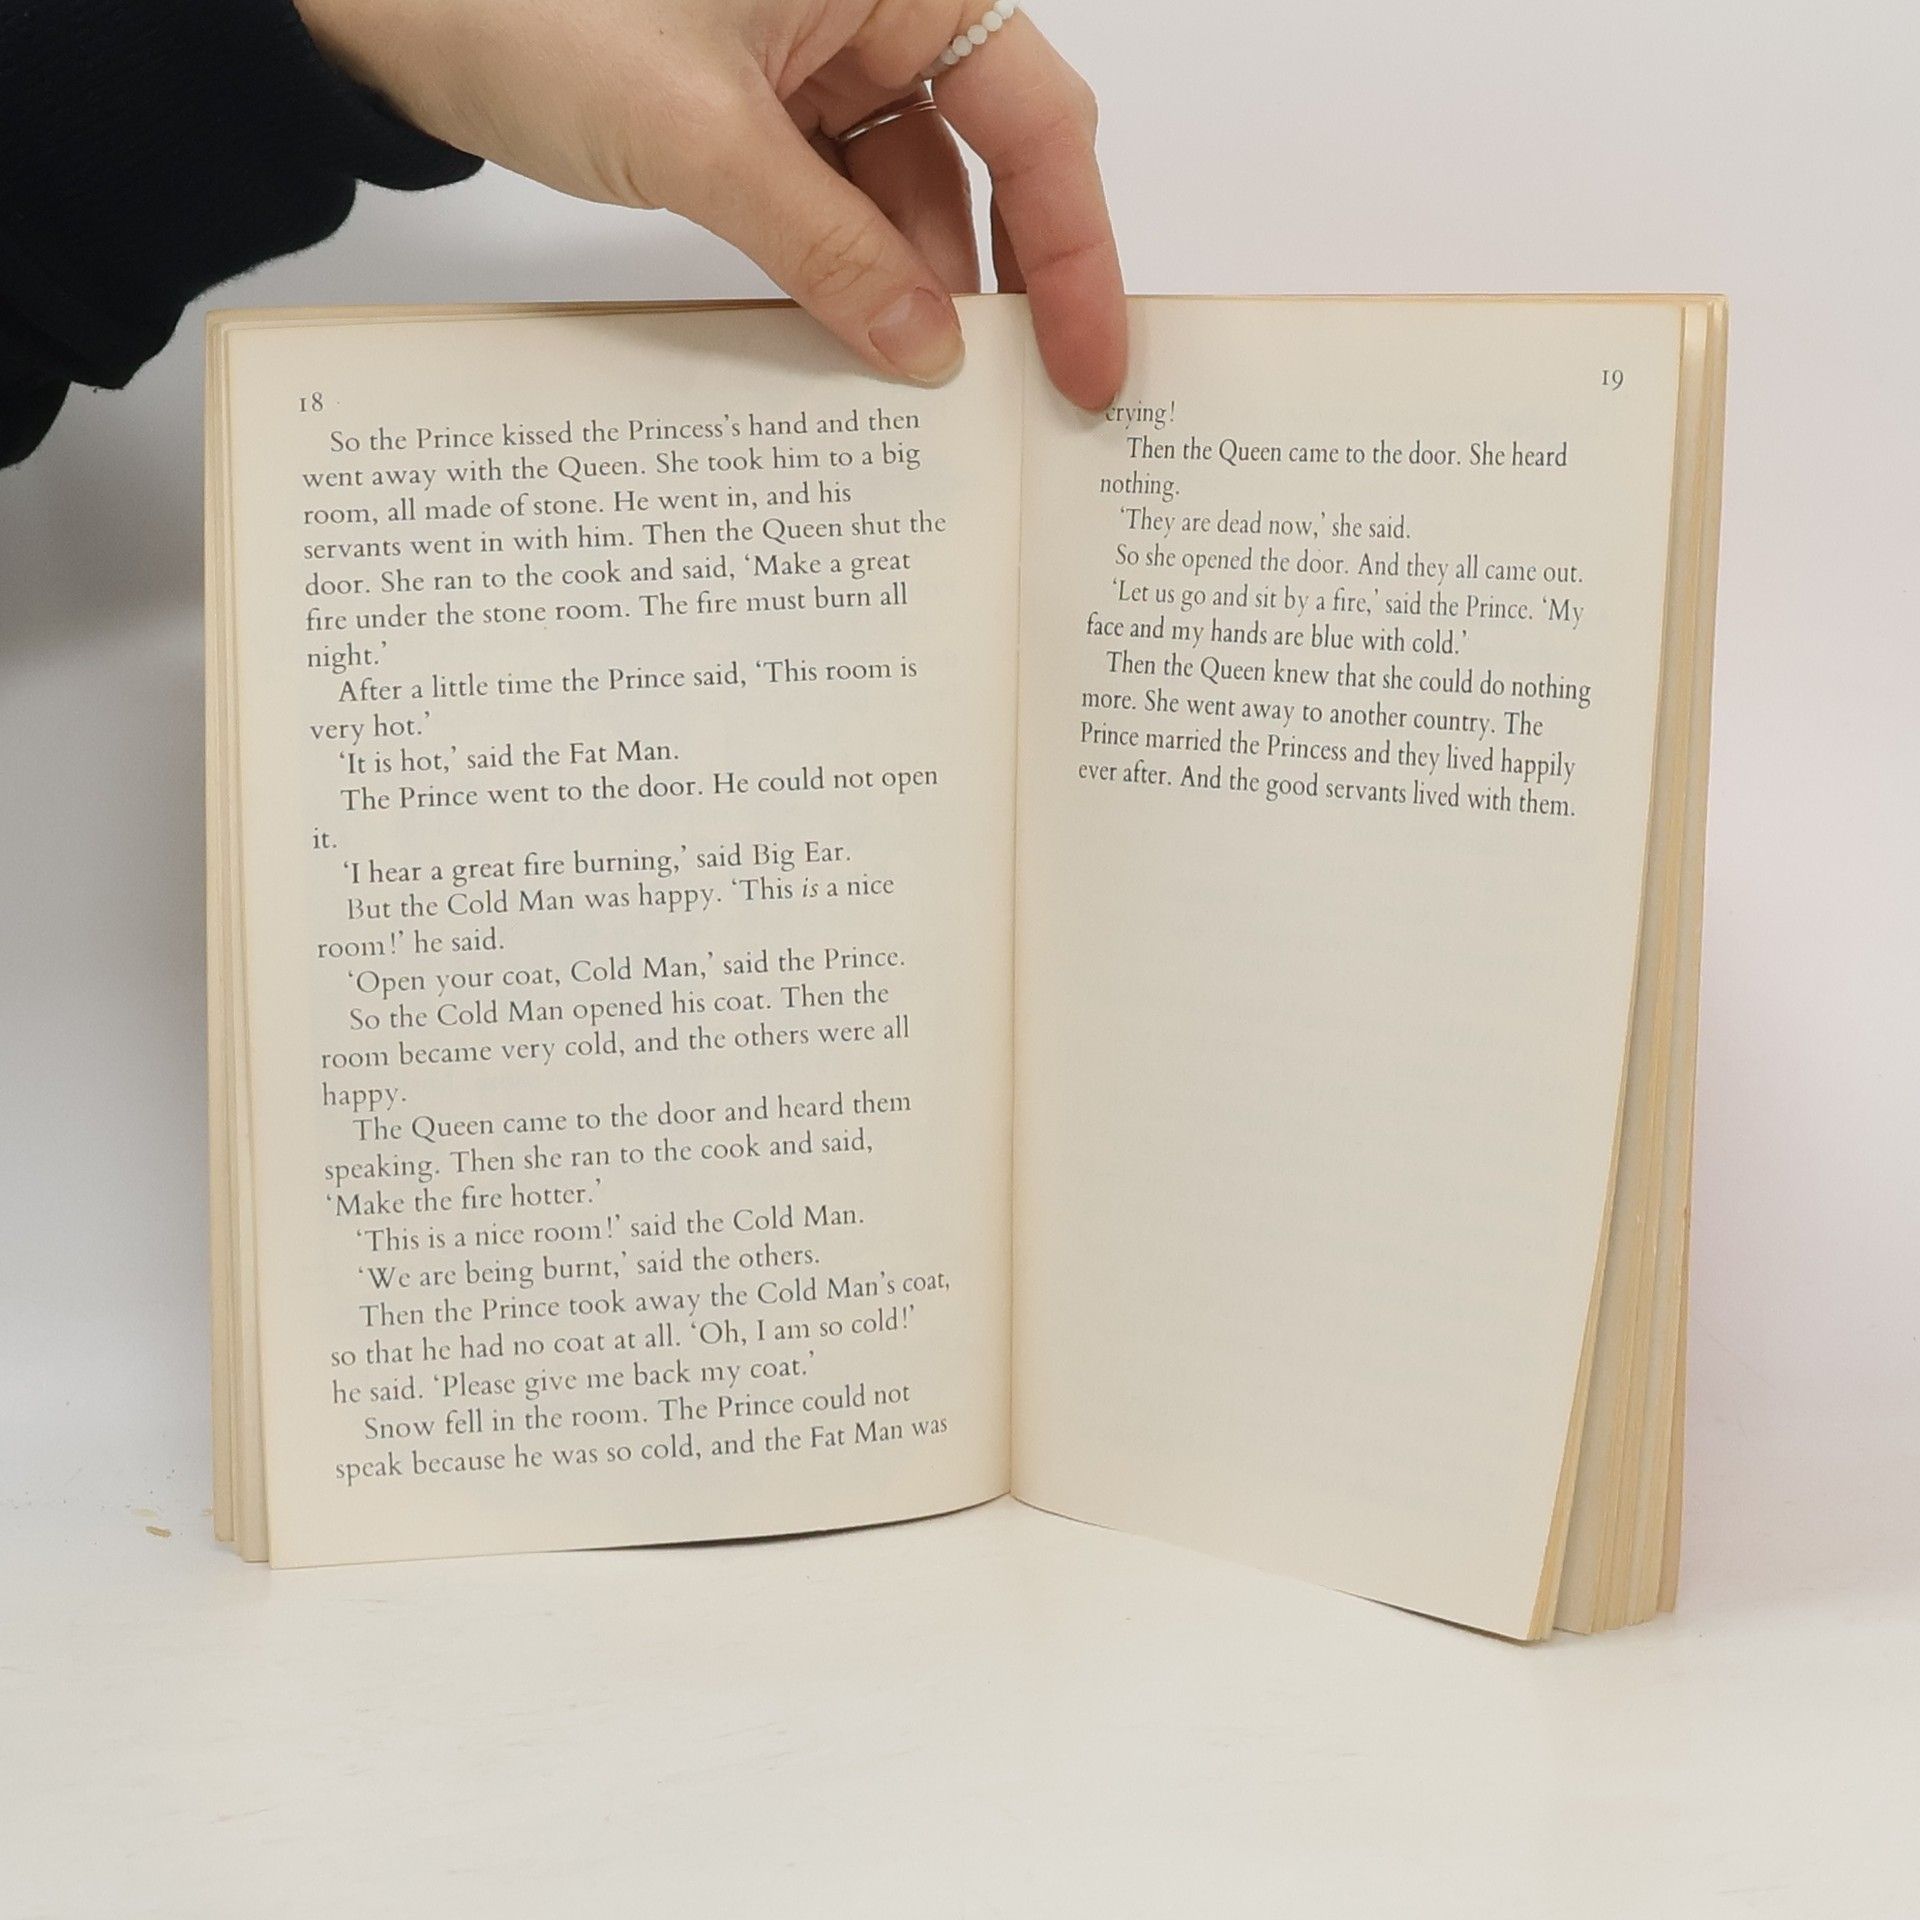 18
So the Prince kissed the Princess's hand and then
went away with the Queen. She took him to a big
room, all made of stone. He went in, and his
servants went in with him. Then the Queen shut the
door. She ran to the cook and said, ‘Make a great
fire under the stone room. The fire must burn all
night.’
After a little time the Prince said, ‘This room is
very hot.’
‘It is hot,’ said the Fat Man.
The Prince went to the door. He could not open
it.
‘I hear a great fire burning,’ said Big Ear.
But the Cold Man was happy. ‘This is a nice
room!’ he said.
‘Open your coat, Cold Man,’ said the Prince.
So the Cold Man opened his coat. Then the
room became very cold, and the others were all
happy.
The Queen came to the door and heard them
speaking. Then she ran to the cook and said,
‘Make the fire hotter.’
‘This is a nice room!’ said the Cold Man.
‘We are being burnt,’ said the others.
Then the Prince took away the Cold Man's coat,
so that he had no coat at all. ‘Oh, I am so cold!’
he said. ‘Please give me back my coat.’
Snow fell in the room. The Prince could not
speak because he was so cold, and the Fat Man was
19
crying!
Then the Queen came to the door. She heard
nothing.
‘They are dead now,’ she said.
So she opened the door. And they all came out.
‘Let us go and sit by a fire,’ said the Prince. ‘My
face and my hands are blue with cold.’
Then the Queen knew that she could do nothing
more. She went away to another country. The
Prince married the Princess and they lived happily
ever after. And the good servants lived with them.